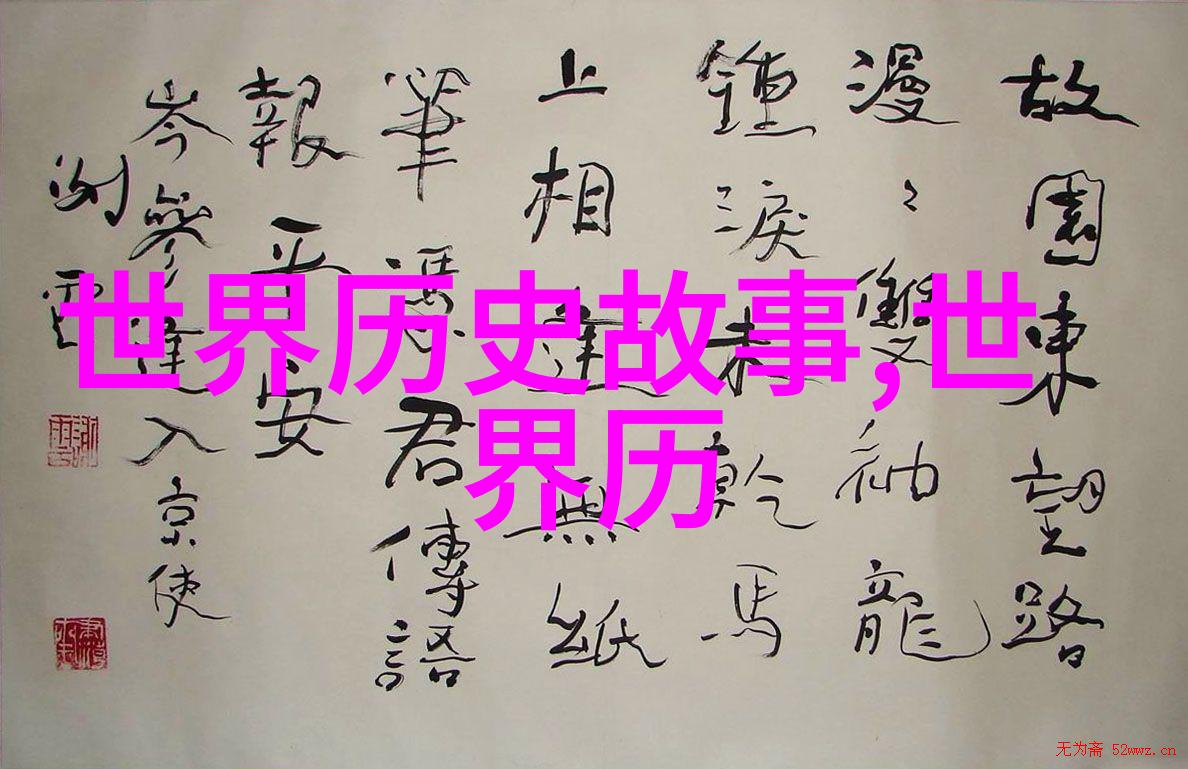 故園東望路
漫々雙袖龍
鍾淚未乾馬
上相逢無紙
筆憑君傳語
報平安
岑參逢入京使
世界历史故事,世
界历
无为斋 52wwz.cn